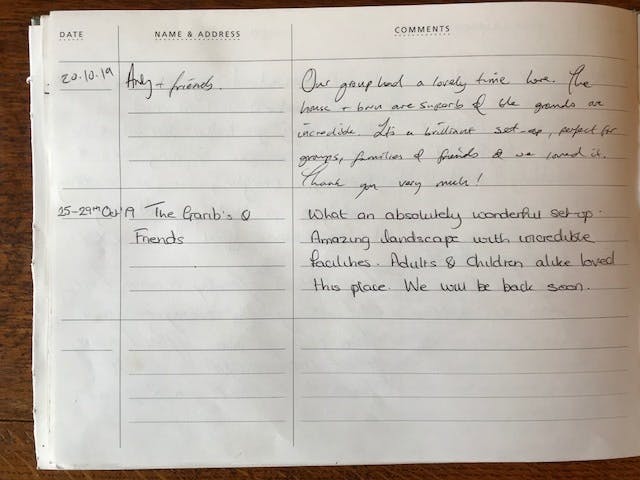 DATE
NAME & ADDRESS
COMMENTS
20.10.19
Andy + friends.
Our group had a lovely time here. The
house + barn are superb & the grounds are
incredible. It's a brilliant set-up, perfect for
groups, families & friends & we loved it.
Thank you very much!
25-29th Oct '19
The Garib's &
Friends
What an absolutely wonderful set up.
Amazing landscape with incredible
facilities. Adults & Children alike loved
this place. We will be back soon.